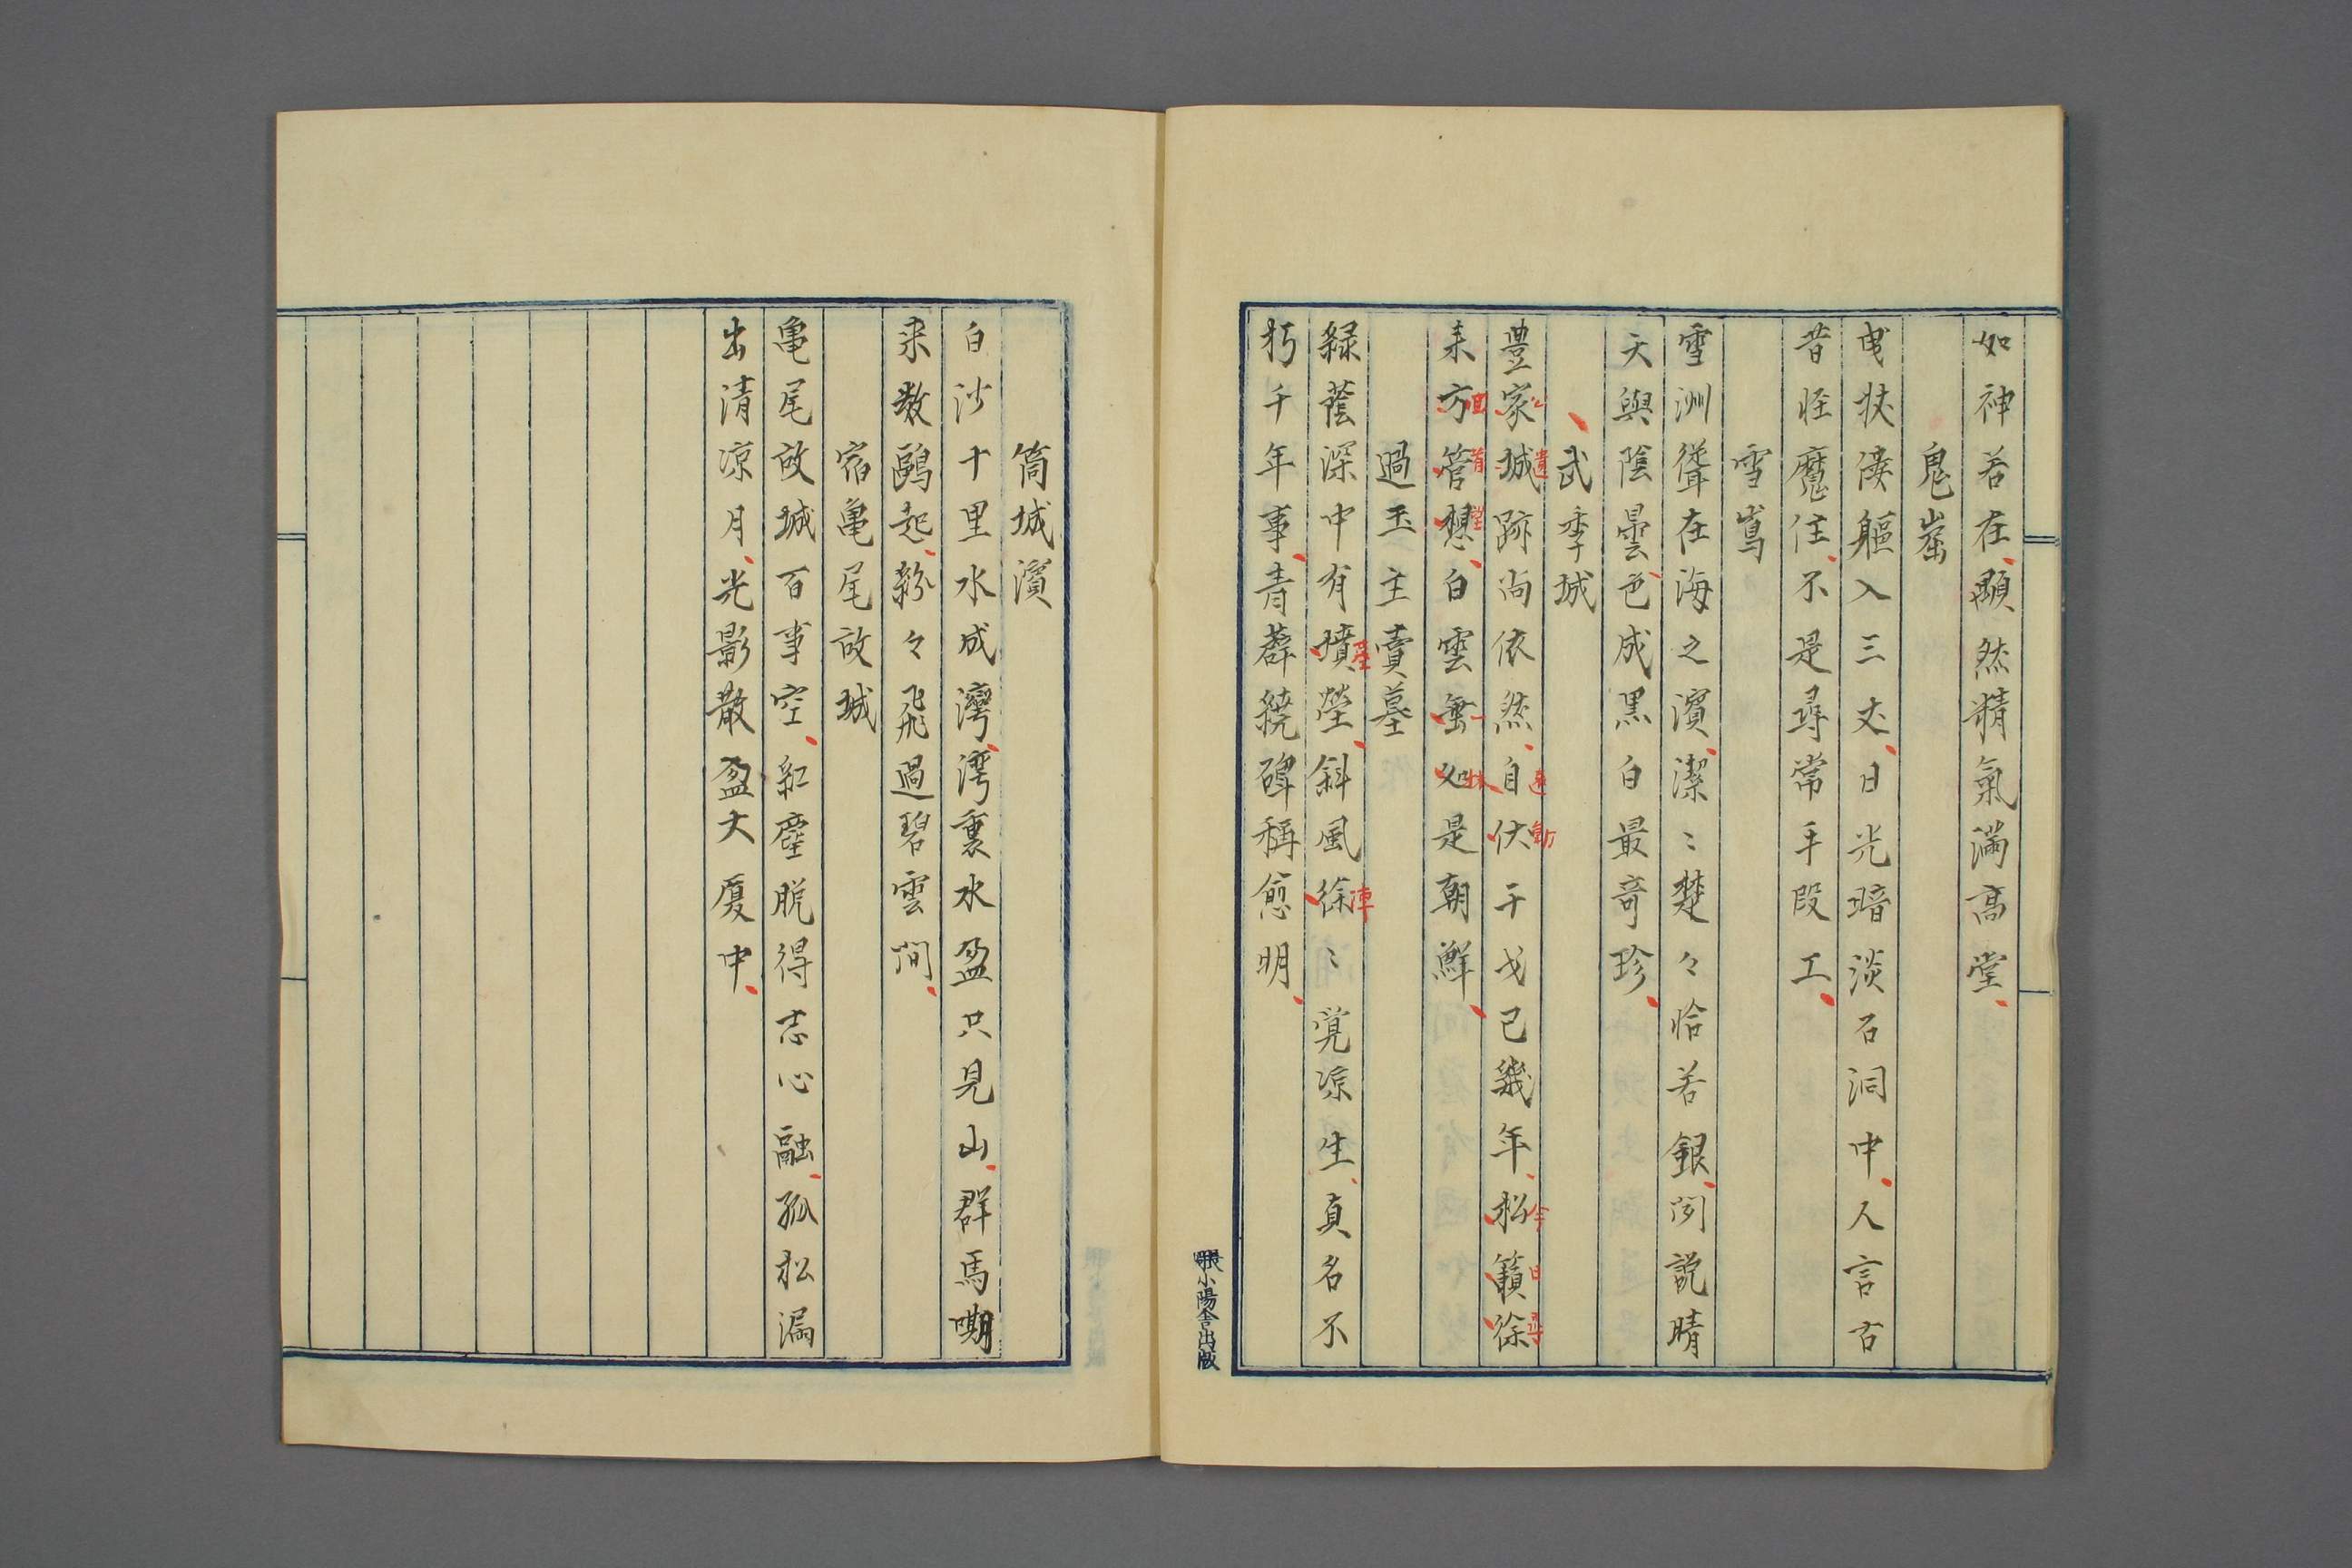 如神若在顯然精氣滿高堂
鬼窟
曳杖僂軀入三丈日光暗淡石洞中人言古
昔怪魔住不是尋常手段工
雪嶌
雪洲聳在海之濱潔〻楚々恰若銀閃説晴
天與陰曇雲色成黒白最奇珍
武季城
豊家城跡尚依然自伏干戈已幾年松籟徐
遺 遠動 今日尋
来方管想白雲無如是朝鮮
回首望 一抹
過玉主賣墓
緑蔭深中有墳塋斜風徐〻覚凉生真名不
陣
朽千年事青薜繞碑稱愈明
張小陽舎出版
筒城濱
白沙十里水成灣灣裏水盈只見山群馬嘶
来数鷗起紛々飛過碧雲間
宿亀尾故城
亀尾故城百事空紅塵脱得志心融孤松漏
出清凉月光影散盈大厦中